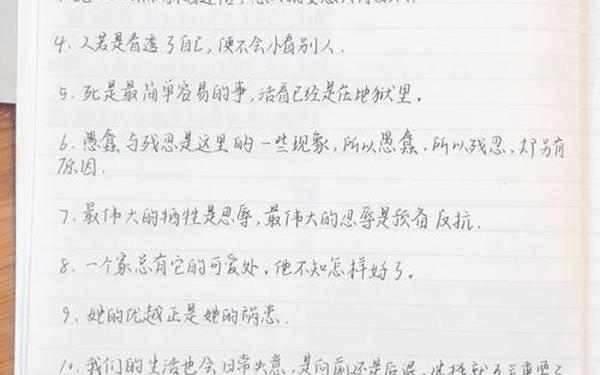 4. 人若是看透了自己，便不会小看别人.
5. 死是最简单容易的事，活着已经是在地狱里。
6. 愚蠢与残忍是这里的一些现象，所以愚蠢，所以残忍，却另有
原因.
7. 最伟大的牺牲是忍辱，最伟大的忍辱是预备反抗.
8. 一个家总有它的可爱处，他不知怎样好了。
9. 她的优越正是她的祸患.
10. 我们的生活也会日常失意，是向前还是后退，选择就至关重要了